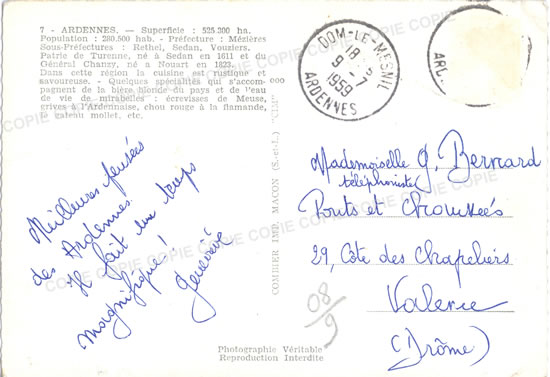 7 - ARDENNES. — Superficie : 525.200 ha.
Population : 280.500 hab. - Préfecture : Mézières
Sous-Préfectures : Rethel, Sedan, Vouziers.
Patrie de Turenne, né à Sedan en 1611 et du
Général Chanzy, né à Nouart en 1823.
Dans cette région la cuisine est rustique et
savoureuse. - Quelques spécialités qui s'accom-
pagnent de la bière blonde du pays et de l'eau
de vie de mirabelles : écrevisses de Meuse,
grives à l'Ardennaise, chou rouge à la flamande,
le gateau mollet, etc.
DOM-LE-MESNIL
18 -
9 - 7
1959
ARDENNES
ARD
Meilleures pensées
des Ardennes.
Il fait un temps
magnifique !
Geneviève
COMBIER IMP. MACON (S.-et-L.) "CIM"
Mademoiselle G. Bernard
téléphoniste
Ponts et Chaussées
29, Côte des Chapeliers
Valence
(Drôme)
08/9
Photographie Véritable
Reproduction Interdite
COPIE COPIE COPIE COPIE